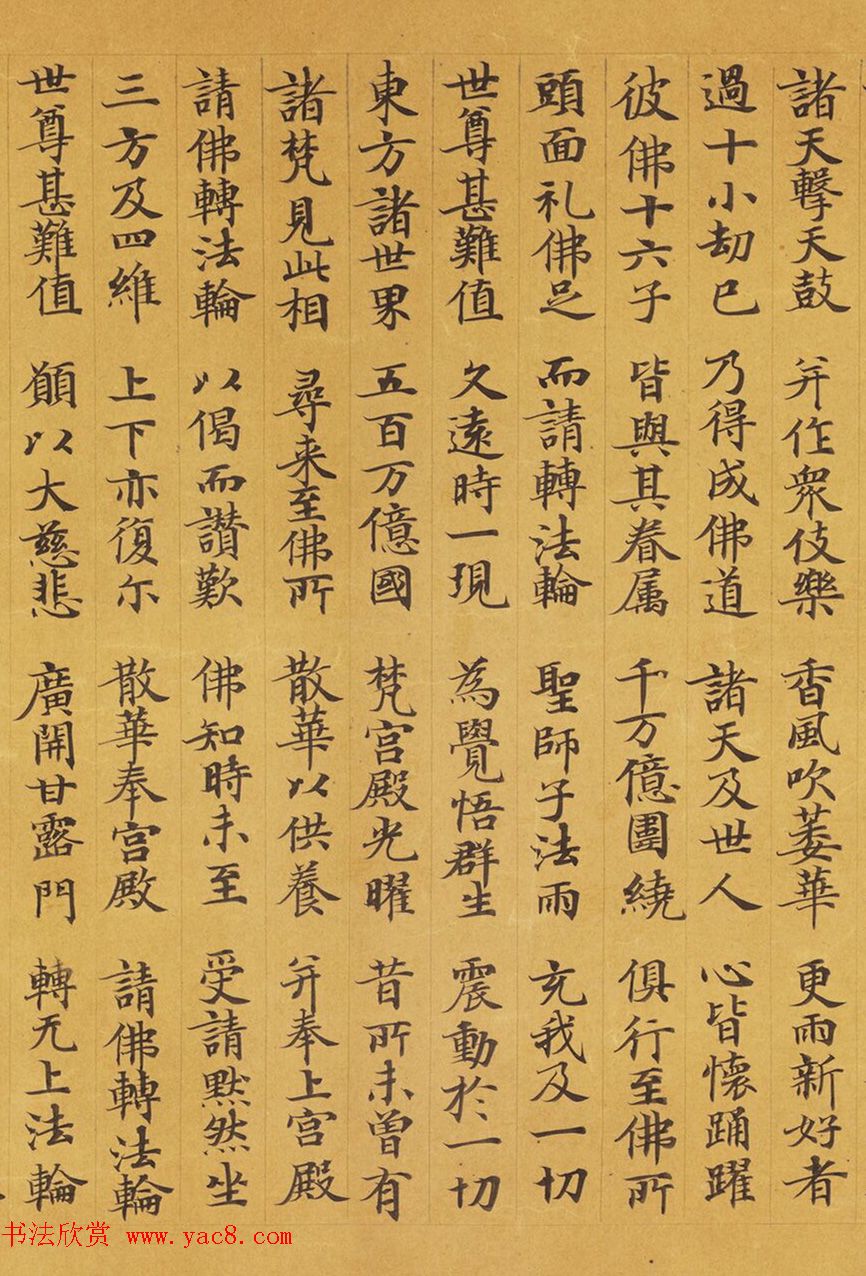 諸天擊天鼓 并作眾伎樂 香風吹萎華 更雨新好者
過十小劫已 乃得成佛道 諸天及世人 心皆懷踊躍
彼佛十六子 皆與其眷属 千万億圍繞 俱行至佛所
頭面礼佛足 而請轉法輪 聖師子法雨 充我及一切
世尊甚難值 久遠時一現 為覺悟群生 震動於一切
東方諸世界 五百万億國 梵宮殿光曜 昔所未曾有
諸梵見此相 尋来至佛所 散華以供養 并奉上宮殿
請佛轉法輪 以偈而讃歎 佛知時未至 受請默然坐
三方及四維 上下亦復尒 散華奉宮殿 請佛轉法輪
世尊甚難值 願以大慈悲 廣開甘露門 轉无上法輪
书法欣赏 www.yac8.com